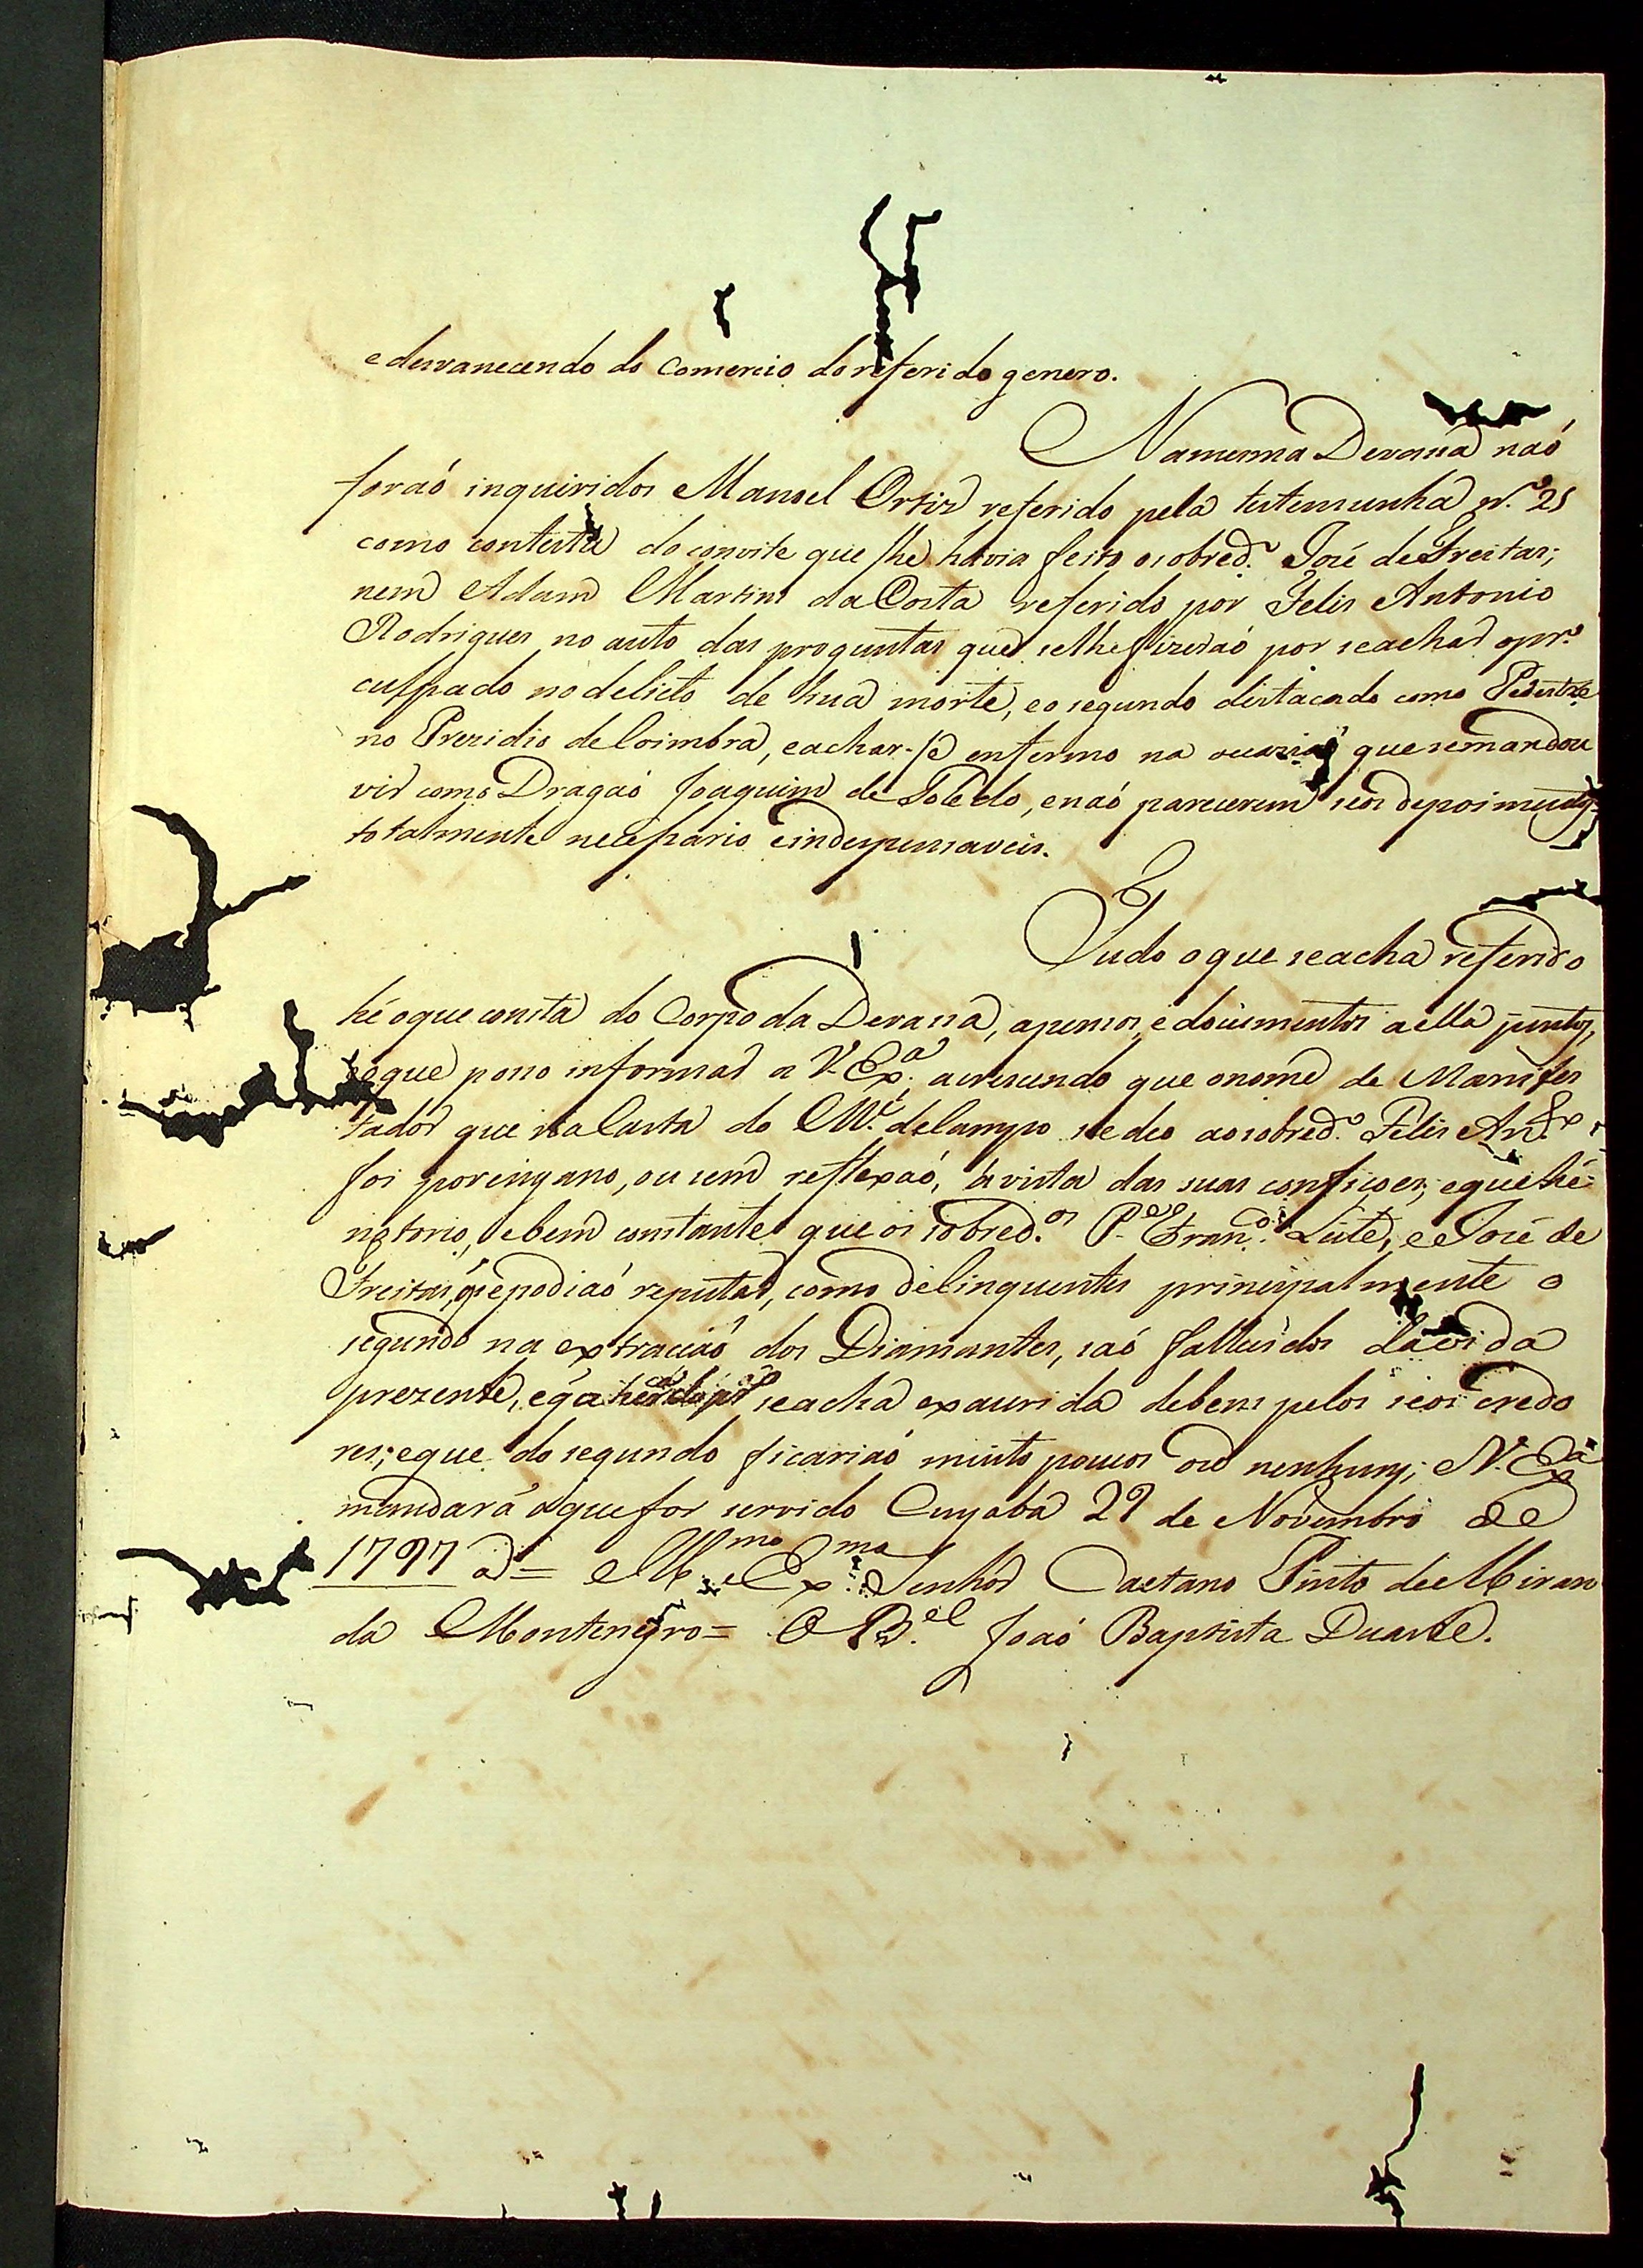 e desvanecendo do Comercio do referido genero.
Na mesma Devassa naõ
foraõ inquiridos Manoel Ortiz referido pela testemunha N.º 21
como contesta do convite que lhe havia feito o sobred.º José de Freitas;
nem Adam Martins da Costa referido por Felis Antonio
Rodrigues no auto das proguntas que se lhe fizeraõ por se achar o pr.º
culpado no delicto de hua morte, e o segundo destacado como Pedestre
no Prezidio de Coimbra, e achar-se enfermo na ocaziaõ que se mandou
vir como Dragaõ Joaquim de Toledo, e naõ parecerem seos depoimentos
totalmente necessario e indespensaveis.
Tudo o que se acha referido
hé o que consta do Corpo da Devassa, apensos, e documentos a ella juntos,
e o que posso informar a V. Ex.ª acrescendo que o nome de Manifes
tador que na Carta do M.e de Campo se deo ao sobred.º Felis Ant.º
foi por engano, ou sem reflexaõ, á vista das suas confisoes; e que hé
notorio, e bem constante que os sobred.os P.e Fran.co Leite, e José de
Freitas, q se podiaõ reputar, como delinquentes principalmente o
segundo na extraciaõ dos Diamantes, saõ fallecidos da vida
prezente, e q a se acha exaurida de bens pelos seos credo
res; e que do segundo ficariaõ muito poucos ou nenhuns; V. Ex.ª
mandará o que for servido Cuyabá 29 de Novembro de
1797 a = Ill.mo e Ex.mo Senhor Caetano Pinto de Miran
da Montenegro = O B.el Joaõ Baptista Duarte.